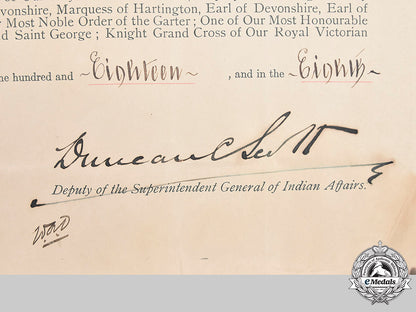 vonshire, Marquess of Hartington, Earl of Devonshire, Earl of
r Most Noble Order of the Garter; One of Our Most Honourable
d Saint George; Knight Grand Cross of Our Royal Victorian
ne hundred and Eighteen, and in the Eighth
Duncan C Scott
Deputy of the Superintendent General of Indian Affairs.